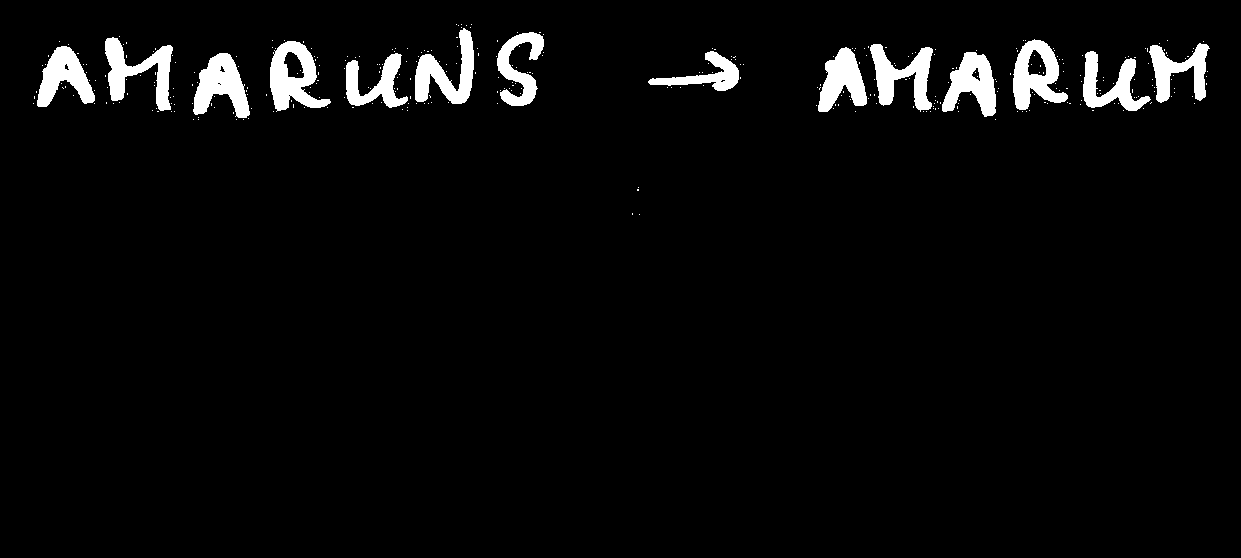 AMARUNS → AMARUM